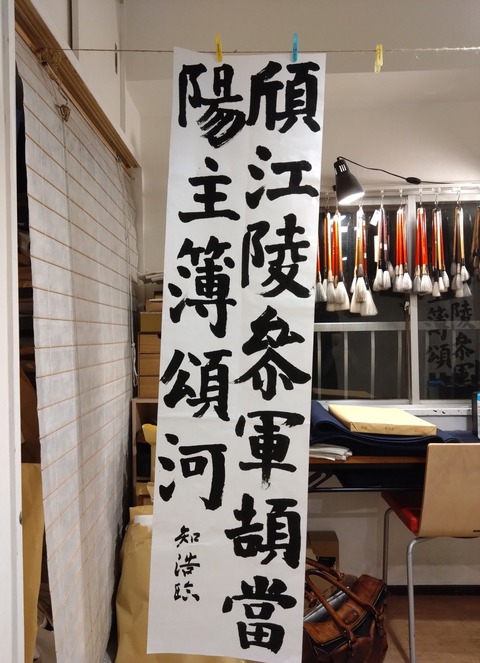 頋江陵叅軍頡當
陽主簿頌河
知浩臨